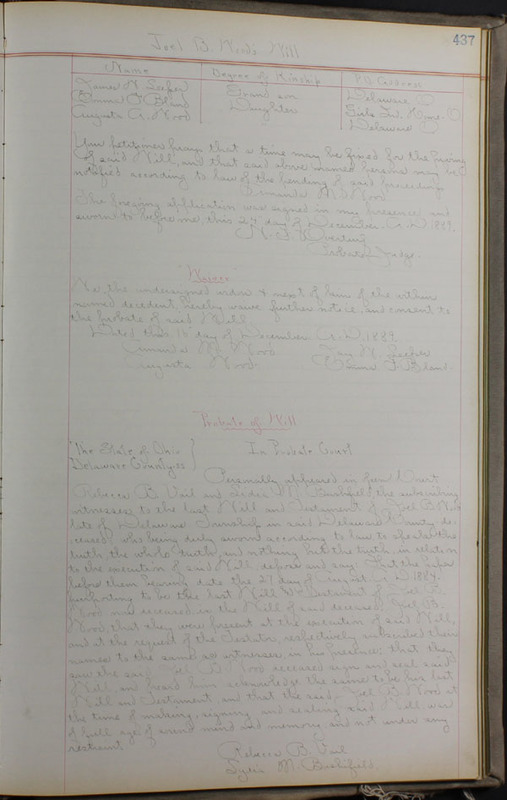 437
Joel B. Wood's Will
Name Degree of Kinship P.O. Address
James W. Leeper Grand son Delaware O
Emma F. Bland Daughter
Augusta A. Wood Delaware
Your petitioner prays that a time may be fixed for the proving
of said Will, and that said above named persons may be
notified according to law of the pending of said proceedings
Amanda M. Wood
The foregoing application was signed in my presence and
sworn to before me, this 24 day of December A.D. 1889.
Probate Judge.
Waiver
We, the undersigned widow & next of kin of the within
named decedent, hereby waive further notice, and consent to
the probate of said Will.
Dated this day of December A.D. 1889
Amanda M. Wood Leeper
Augusta Wood Emma F. Bland
Probate of Will
The State of Ohio } In Probate Court
Delaware County ss }
Personally appeared in Open Court
Rebecca B. Vail and Lydia M. Bushfield the subscribing
witnesses to the last Will and Testament of Joel B. Wood
late of Delaware Township in said Delaware County de-
ceased, who being duly sworn according to law to speak the
truth the whole truth, and nothing but the truth, in relation
to the execution of said Will, depose and say: That the paper
before them bearing date the 27 day of August A.D. 1884
purporting to be the last Will & Testament of Joel B.
Wood now deceased is the Will of said deceased Joel B.
Wood, that they were present at the execution of said Will,
and at the request of the Testator, respectively subscribed their
names to the same as witnesses in his presence; that they
saw the said Joel B. Wood deceased sign and seal said
Will, and heard him acknowledge the same to be his last
Will and Testament and that the said Joel B. Wood at
the time of making, signing and sealing said Will was
of full age of sound mind and memory and not under any
restraint.
Rebecca B. Vail
Lydia M. Bushfield.